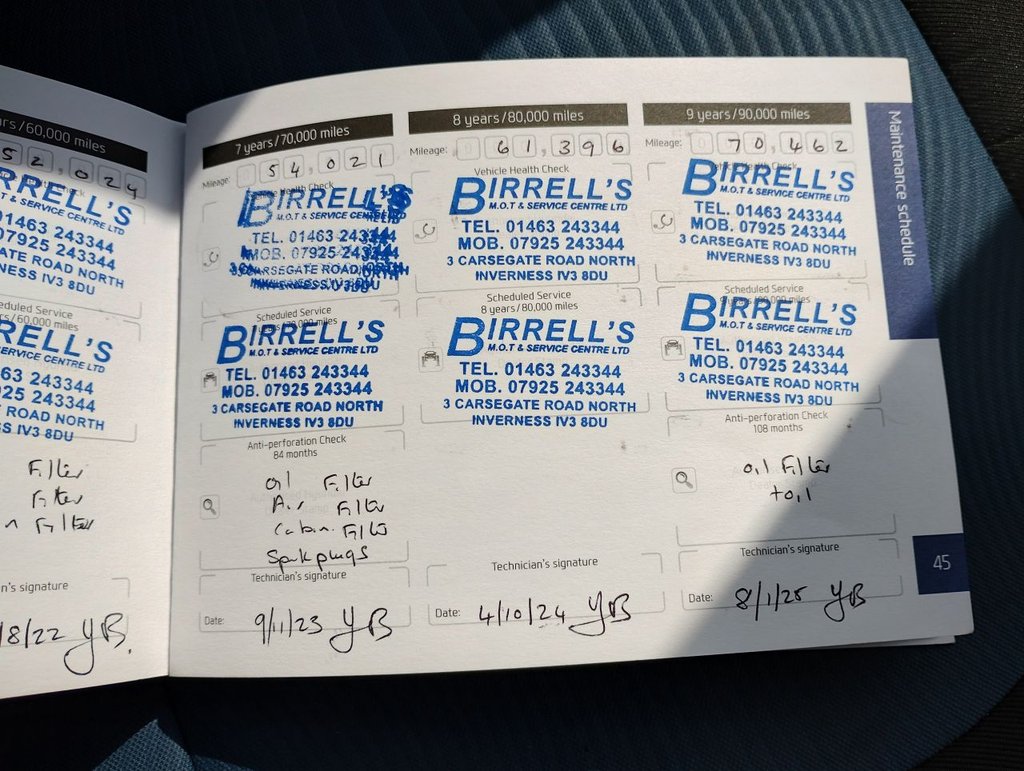 rs/60,000 miles
52,024
RRELL'S
.T & SERVICE CENTRE LTD
01463 243344
07925 243344
GATE ROAD NORTH
NESS IV3 8DU
eduled Service
s/60,000 miles
RRELL'S
SERVICE CENTRE LTD
63 243344
25 243344
ROAD NORTH
SS IV3 8DU
Filter
Filter
n Filter
n's signature
/8/22 YB.
7 years/70,000 miles
Mileage: 54,021
BIRRELL'S
M.O.T & SERVICE CENTRE LTD
TEL. 01463 243344
MOB. 07925 243344
3 CARSEGATE ROAD NORTH
INVERNESS IV3 8DU
Scheduled Service
BIRRELL'S
M.O.T & SERVICE CENTRE LTD
TEL. 01463 243344
MOB. 07925 243344
3 CARSEGATE ROAD NORTH
INVERNESS IV3 8DU
Anti-perforation Check
84 months
Oil Filter
Air Filter
Cabin Filter
Spark plugs
Technician's signature
Date: 9/11/23 YB
8 years/80,000 miles
Mileage: 61,396
Vehicle Health Check
BIRRELL'S
M.O.T & SERVICE CENTRE LTD
TEL. 01463 243344
MOB. 07925 243344
3 CARSEGATE ROAD NORTH
INVERNESS IV3 8DU
Scheduled Service
8 years/80,000 miles
BIRRELL'S
M.O.T & SERVICE CENTRE LTD
TEL. 01463 243344
MOB. 07925 243344
3 CARSEGATE ROAD NORTH
INVERNESS IV3 8DU
Technician's signature
Date: 4/10/24 YB
9 years/90,000 miles
Mileage: 070,462
BIRRELL'S
M.O.T & SERVICE CENTRE LTD
TEL. 01463 243344
MOB. 07925 243344
3 CARSEGATE ROAD NORTH
INVERNESS IV3 8DU
Scheduled Service
BIRRELL'S
M.O.T & SERVICE CENTRE LTD
TEL. 01463 243344
MOB. 07925 243344
3 CARSEGATE ROAD NORTH
INVERNESS IV3 8DU
Anti-perforation Check
108 months
oil Filter
+oil
Technician's signature
Date: 8/1/25 YB
Maintenance schedule
45